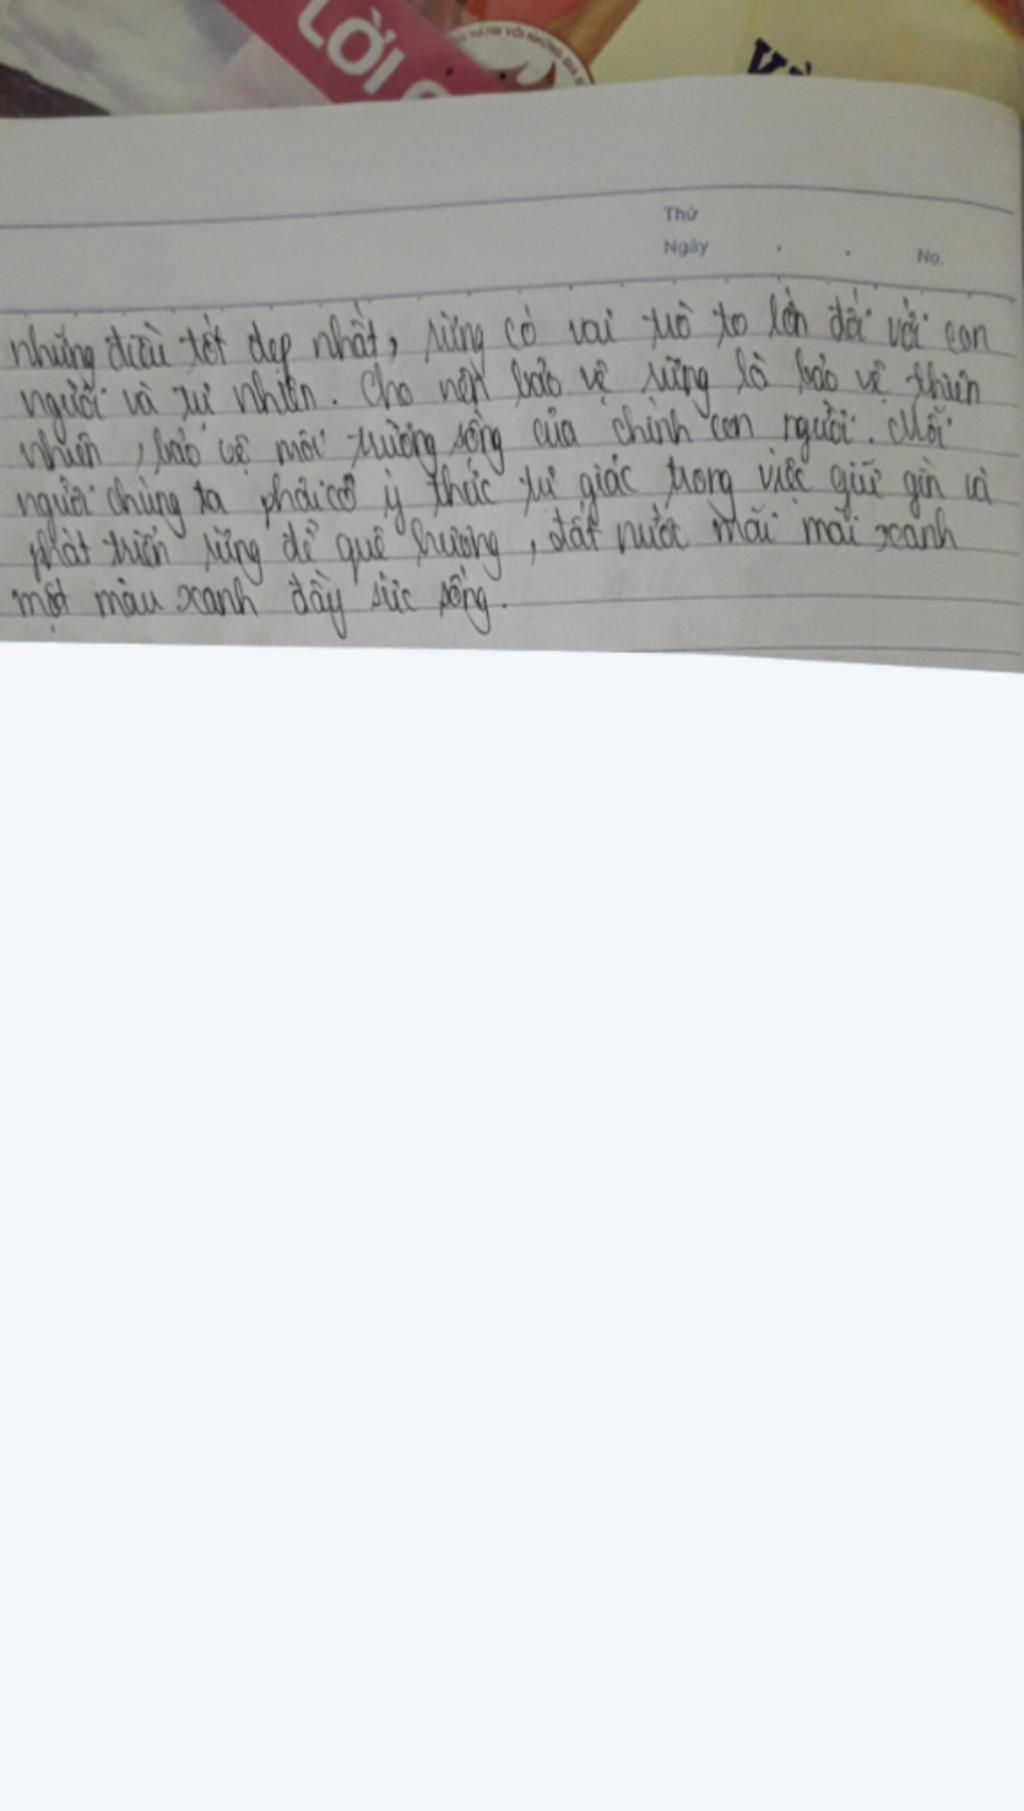 LỜI
HÀNH VỚI NHỮNG
Thứ
Ngày . . No.
những điều tốt đẹp nhất, rừng có vai trò to lớn đối với con
người và tự nhiên. Cho nên bảo vệ rừng là bảo vệ thiên
nhiên, bảo vệ môi trường sống của chính con người. Mỗi
người chúng ta phải có ý thức tự giác trong việc giữ gìn và
phát triển rừng để quê hương, đất nước mãi mãi xanh
một màu xanh đầy sức sống.